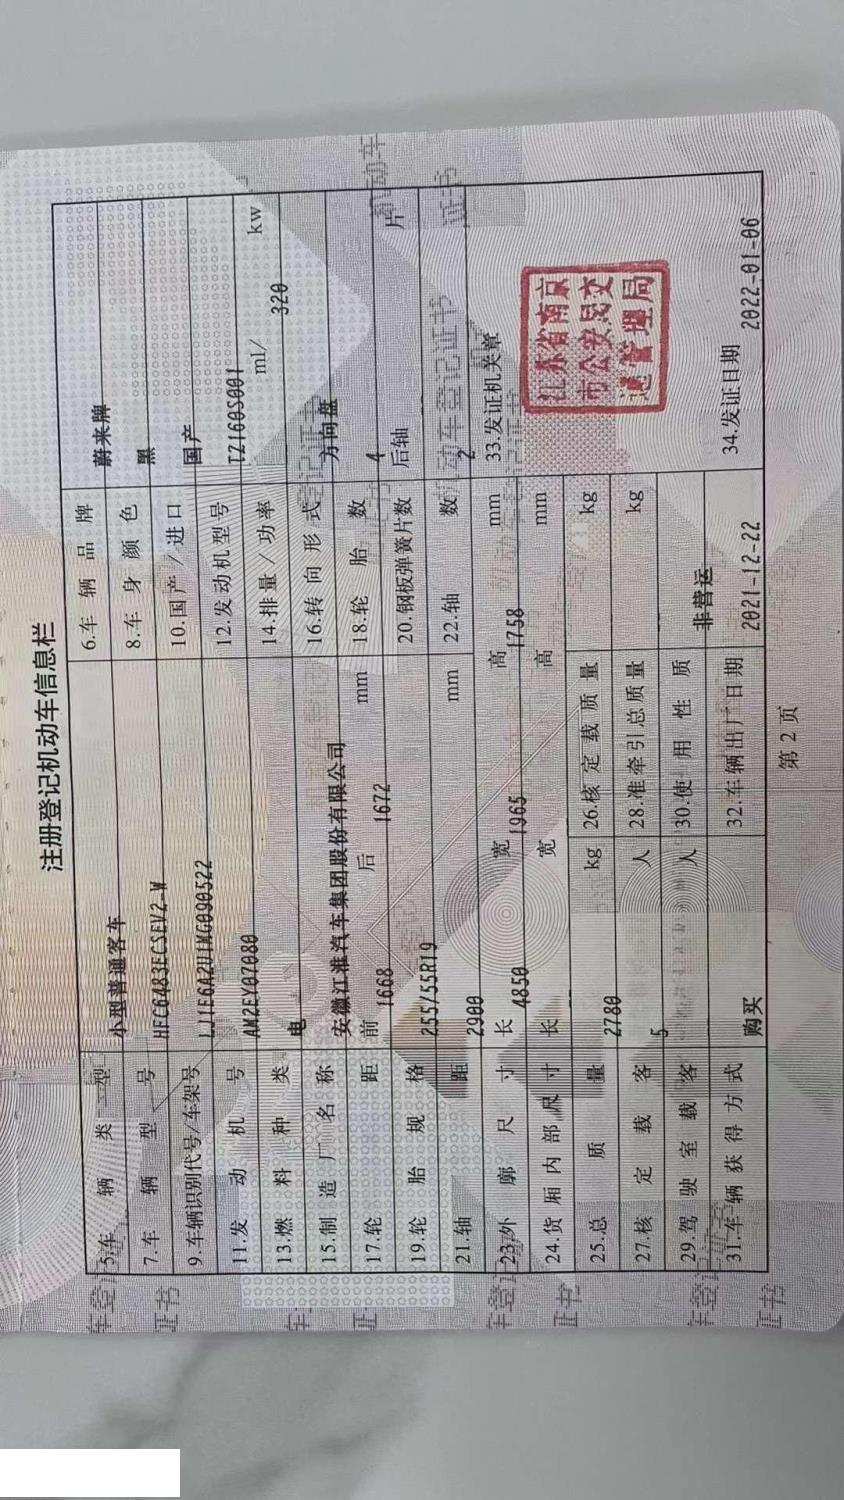 注册登记机动车信息栏
5.车辆类型 小型普通客车 6.车辆品牌 蔚来牌
7.车辆型号 HFC6483ECSEV2-W 8.车身颜色 黑
9.车辆识别代号/车架号 LJ1E6A2U1MG090522 10.国产/进口 国产
11.发动机号 AM2EY07080 12.发动机型号 TZ160S001
13.燃料种类 电 14.排量/功率 ml/ 320 kw
15.制造厂名称 安徽江淮汽车集团股份有限公司 16.转向形式 方向盘
17.轮距 前 1668 后 1672 mm 18.轮胎数 4
19.轮胎规格 255/55R19 20.钢板弹簧片数 后轴 片
21.轴距 2900 mm 22.轴数 2
23.外廓尺寸 长 4850 宽 1965 高 1758 mm 33.发证机关章
24.货厢内部尺寸 长 -- 宽 高 mm
江苏省南京
市公安局交
通管理局
25.总质量 2780 kg 26.核定载质量 kg
27.核定载客 5 人 28.准牵引总质量 -- kg
29.驾驶室载客 -- 人 30.使用性质 非营运
31.车辆获得方式 购买 32.车辆出厂日期 2021-12-22 34.发证日期 2022-01-06
第 2 页